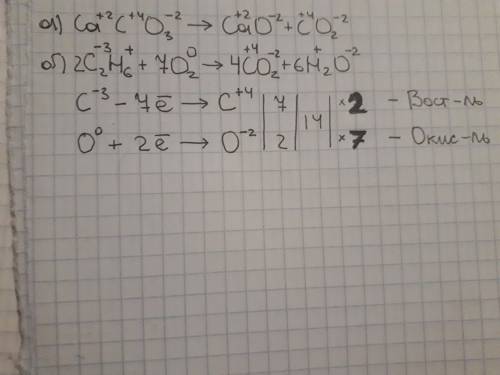 а) Ca⁺²C⁺⁴O₃⁻² → Ca⁺²O⁻² + C⁺⁴O₂⁻²
б) 2C₂⁻³H₆⁺ + 7O₂⁰ → 4C⁺⁴O₂⁻² + 6H₂⁺O⁻²
C⁻³ - 7ē → C⁺⁴ | 7 | 14 | ×2 - Вост-ль
O⁰ + 2ē → O⁻² | 2 | | ×7 - Окис-ль